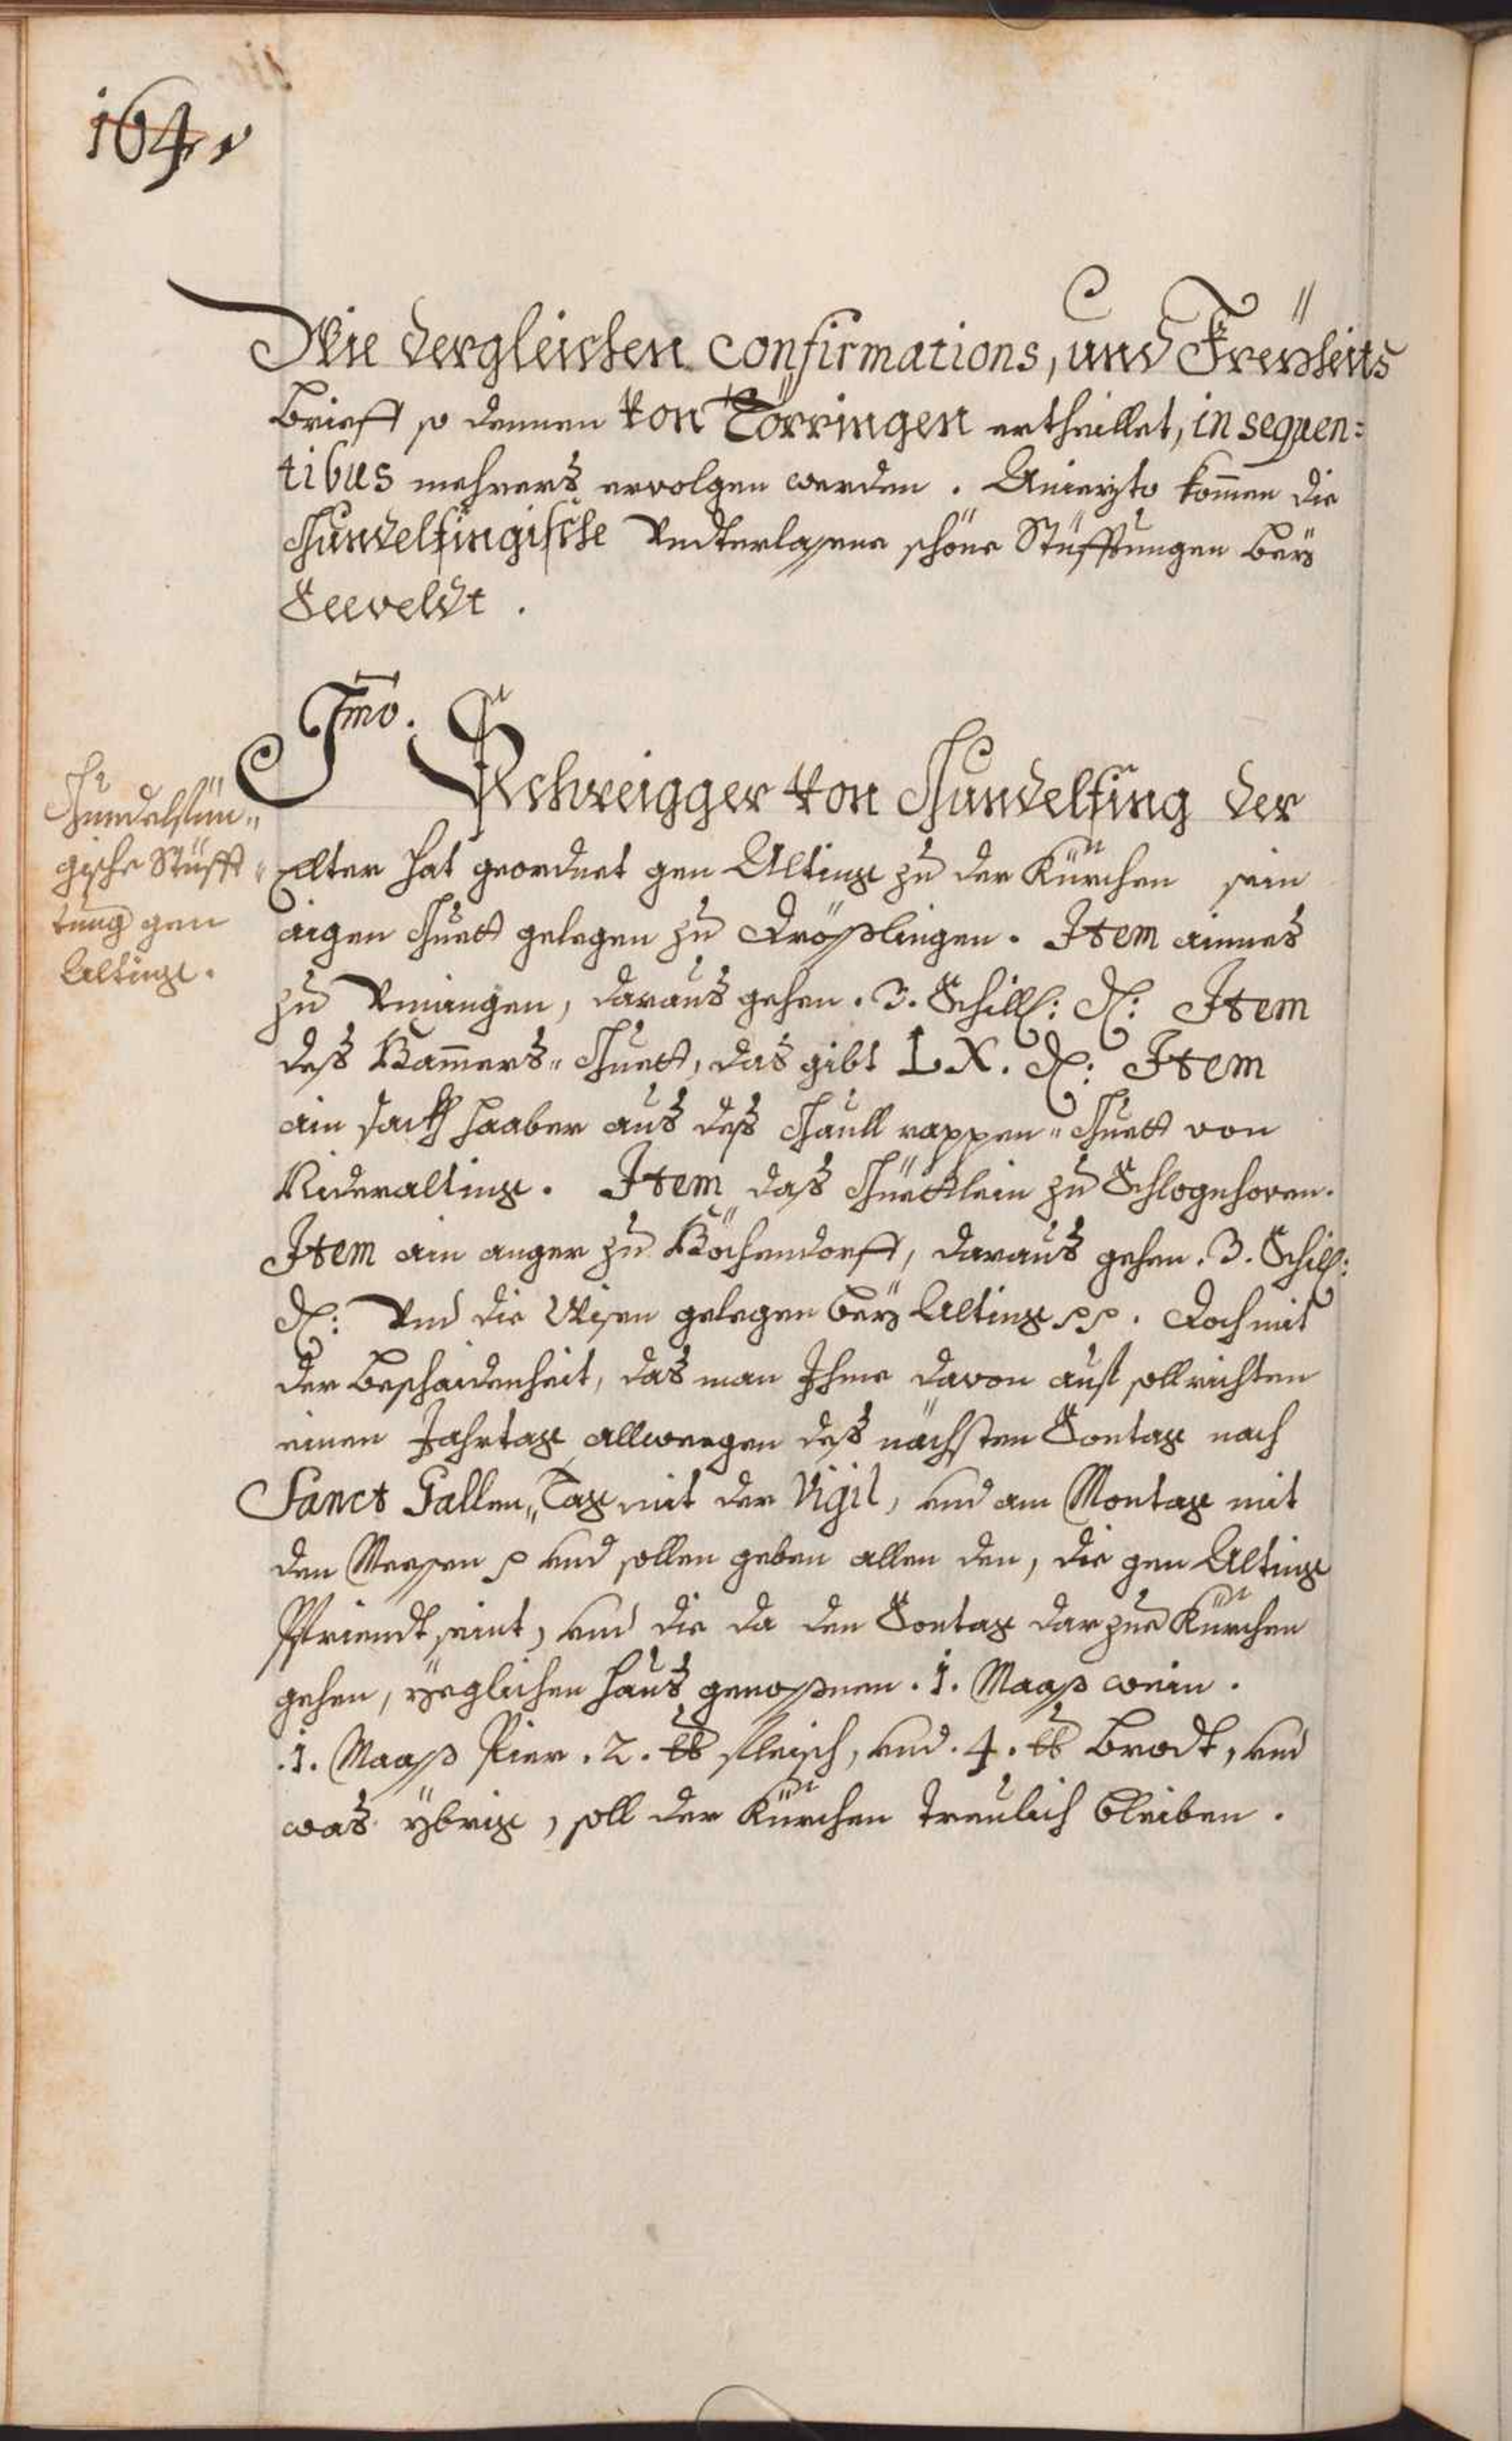 164.
Wie dergleichen confirmations, und Freyheits
Brieff so dennen von Törringen ertheillet, in sequen=
tibus mehrers ervolgen werden. Aniezto kom̄en die
Gundelfingische Undterlassene schöne Stüfftungen beÿ
Seeveldt.
Imo. Schweigger von Gundelfing der
Elter hat geordnet gen Alting zu der Kürchen sein
aigen Guett gelegen zu Drößlingen. Item aines
zu Uningen, daraus gehen. 3. Schill: d: Item
deß Kam̄ers„ Guett, das gibt LX. d: Item
ain sackh Haaber aus deß Haull rappen„ Guett von
Nideralting. Item daß Güettlein zu Schlogehoven.
Item ain anger zu Köchendorff, daraus gehen. 3. Schill:
d: Und die Wisen gelegen beÿ Alting pp. Doch mit
der bescheidenheit, das man Ihme davon aus soll richten
einen Jahrtag allweegen deß nächsten Sontag nach
Sanct Gallen„ Tag mit der Vigil, und am Montag mit
den Messen p und sollen geben allen den, die gen Alting
Pfriendt seint, und die da den Sontag dar zue Kürchen
gehen, yeglichen haus genoßnen. 1. Maaß wein.
.1. Maaß Pier. 2. ℔ fleisch, und. 4. ℔ Brodt, und
was ÿbrig, soll der Kürchen treulich bleiben.
Gundelfün„
gische Stüfft„
tung gen
Alting.